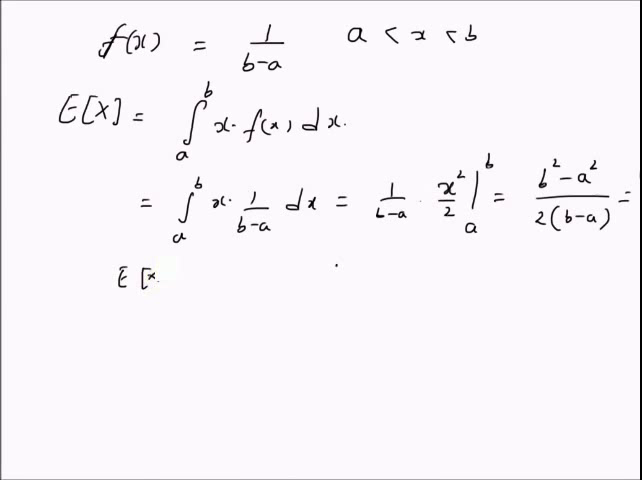 f(x) = 1/(b-a) a < x < b
E[X] = ∫_a^b x · f(x) dx.
= ∫_a^b x · 1/(b-a) dx = 1/(b-a) · x²/2 |_a^b = (b² - a²)/(2(b-a)) =
E [x